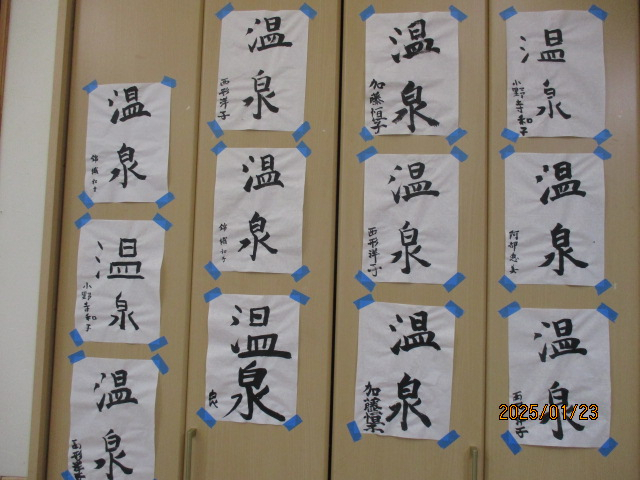 温泉
錦織和子
温泉
小野寺和子
温泉
西形洋子
温泉
西形洋子
温泉
錦織和子
温泉
温泉
加藤恒子
温泉
西形洋子
温泉
加藤
温泉
小野寺和子
温泉
阿部恵美
温泉
西形洋子
2025/01/23